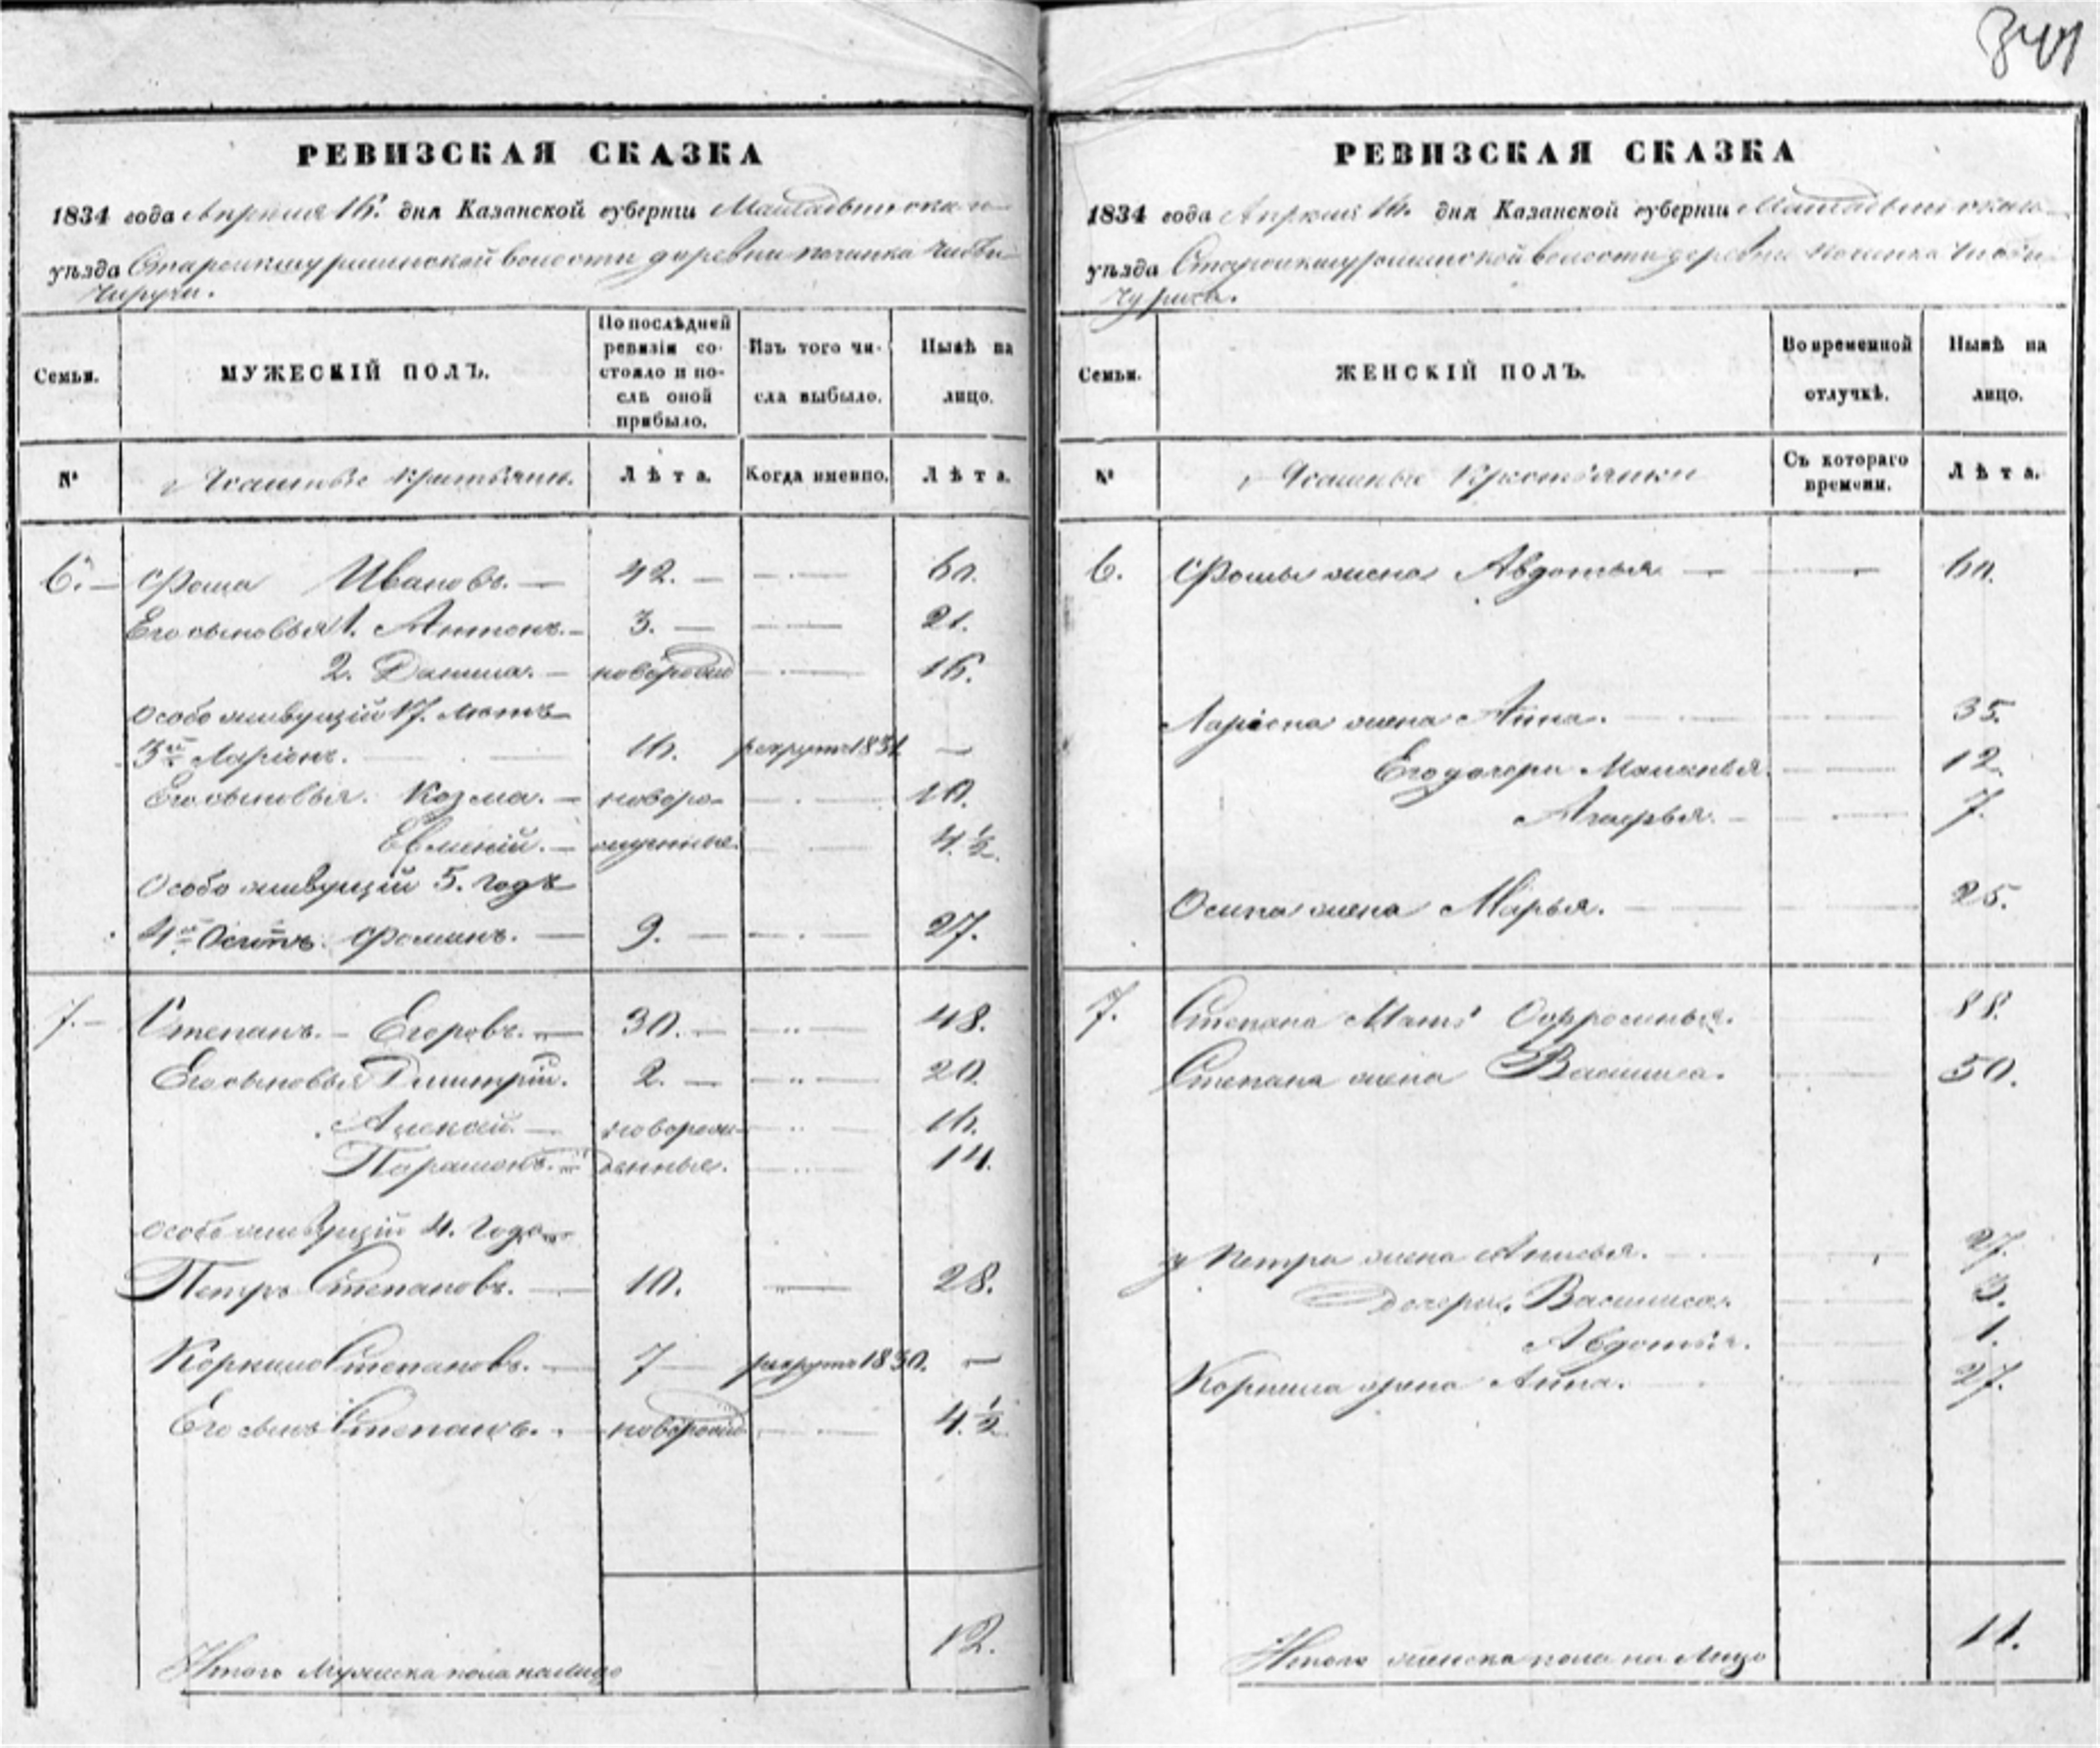 341
РЕВИЗСКАЯ СКАЗКА
1834 года Апреля 16. дня Казанской губерніи
уѣзда волости деревни починка
МУЖЕСКІЙ ПОЛЪ.
Семьи.
По послѣдней ревизіи состояло и послѣ оной прибыло.
Изъ того числа выбыло.
Нынѣ на лицо.
№
Ясашные крестьяне.
Лѣта.
Когда именно.
Лѣта.
6. Фома Ивановъ. 42. 60.
Его сыновья 1. Антонъ. 3. 21.
2. Данила. новорожд 16.
Особо живущій 17. летъ
3й Ларіонъ. 16. рекрутъ 1831
Его сыновья. Козма. новоро- 10.
жденные. 4 ½.
Особо живущій 5. годъ
4й Осипъ Фоминъ. 9. 27.
7. Степанъ. Егоровъ. 30. 48.
Его сыновья Дмитрій. 2. 20.
Алексей. новорож- 16.
Парамонъ. денные. 14.
Особо живущій 4. года
Петръ Степановъ. 10. 28.
Корнило Степановъ. 7 рекрутъ 1830.
Его сынъ Степанъ. новорожд 4 ½
Итого мужеска пола на лицо 12.
РЕВИЗСКАЯ СКАЗКА
1834 года Апреля 16. дня Казанской губерніи
уѣзда волости деревни починка
Семьи.
ЖЕНСКІЙ ПОЛЪ.
Во временной отлучкѣ.
Нынѣ на лицо.
№
Ясашные крестьянки
Съ котораго времени.
Лѣта.
6. Фомы жена Авдотья 60.
Ларіона жена Анна. 35.
Его дочери Маланья. 12.
7.
Осипа жена Марья. 25.
7. Степана мать 88.
Степана жена Василиса. 50.
у Петра жена 27.
Дочери. Василиса. 3.
Авдотья. 1.
Корнила жена Анна. 27.
Итого женска пола на лицо 11.